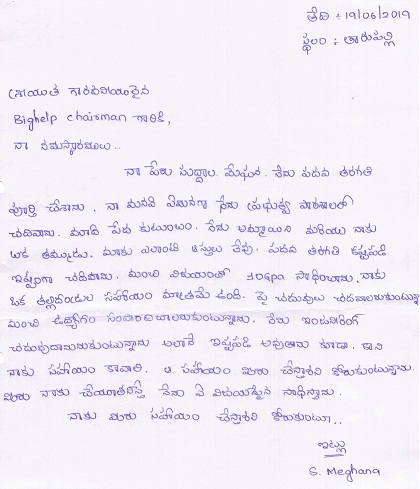 తేది : 19/06/2019
స్థలం : తారుపల్లి
శ్రీయుత గౌరవనీయులైన
Bighelp chairman గారికి,
నా నమస్కారములు..
నా పేరు సుద్దాల. మేఘన. నేను పదవ తరగతి
పూర్తి చేశాను. నా మనవి ఏమనగా నేను ప్రభుత్వ పాఠశాలలో
చదివాను. మాది పేద కుటుంబం. నేను అమ్మాయిని మరియు నాకు
ఒక తమ్ముడు. మాకు ఎలాంటి ఆస్తులు లేవు. పదవ తరగతి కష్టపడి
ఇష్టంగా చదివాను. మంచి విజయంతో 10GPA సాధించాను. నాకు
ఒక తల్లిదండ్రుల సహాయం మాత్రమే ఉంది. పై చదువులు చదవాలనుకుంటున్నా
మంచి ఉద్యోగం సంపాదించాలనుకుంటున్నాను. నేను ఇంజనీరింగ్
చదువుదామనుకుంటున్నాను అలాగే ఇష్టపడి అవుతాను కూడా. కాని
నాకు సహాయం కావాలి. ఆ సహాయం మీరు చేస్తారని కోరుకుంటున్నాను.
మీరు నాకు చేయూతనిస్తే నేను ఏ విజయమైన సాధిస్తాను.
నాకు మీరు సహాయం చేస్తారని కోరుకుంటూ..
ఇట్లు
S. Meghana